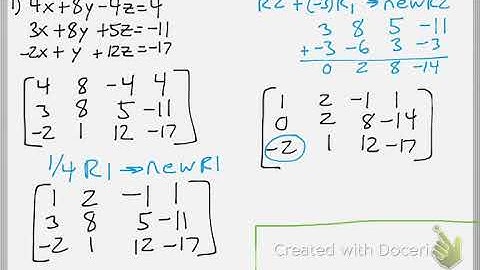 1) 4x+8y-4z=4
3x+8y+5z=-11
-2x+y+12z=-17
4 8 -4 4
3 8 5 -11
-2 1 12 -17
1/4 R1 → new R1
1 2 -1 1
3 8 5 -11
-2 1 12 -17
R2 +(-3)R1 → new R2
3 8 5 -11
+ -3 -6 3 -3
0 2 8 -14
1 2 -1 1
0 2 8 -14
-2 1 12 -17
Created with Doceri